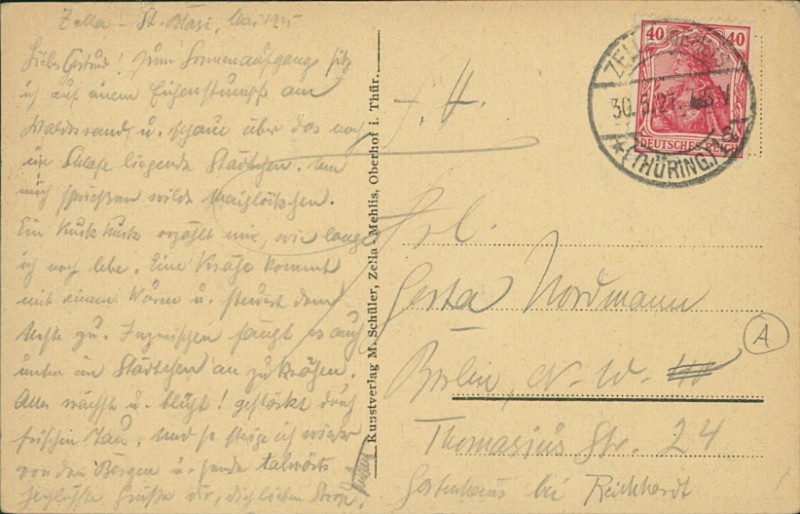 Zella - St. Blasi, Mai
Zum Sonnenaufgang sitz
ich auf einem Eichenstumpf am
Waldrand u. schaue über das noch
im Schlafe liegende Städtchen. Um
mich spriessen wilde Maiglöckchen.
Ein Kuckkuck erzählt mir, wie lange
ich noch lebe. Eine Krähe kommt
mit einem Wurm u. steuert dem
Neste zu. Inzwischen fängt es auch
unten im Städtchen an zu krähen.
Alles wächst u. blüht! gestärkt durch
frischen Tau, und so steige ich wieder
von den Bergen u. sende talwärts
herzlichste Grüße dir, dich lieben
Kunstverlag M. Schüler, Zella-Mehlis, Oberhof i. Thür.
40 40
DEUTSCHES REICH
ZELLA-MEHLIS
30.5.21. V
* (THÜRING.) a
Frl.
Gerta Nordmann
Berlin, N.W.
Thomasius Str. 24
Gartenhaus bei Reichhardt
A